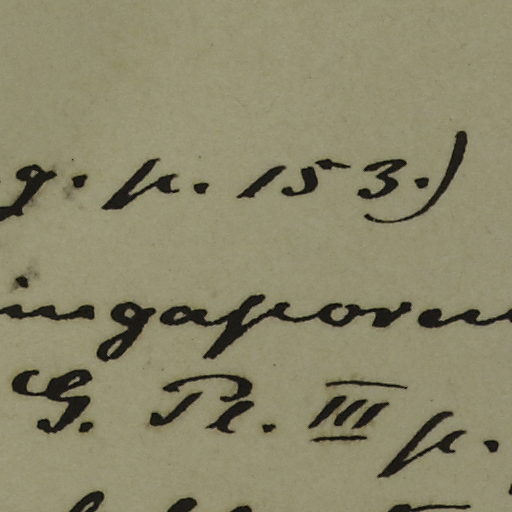 g. p. 153.)
ingaporeu
G. Pl. III p.